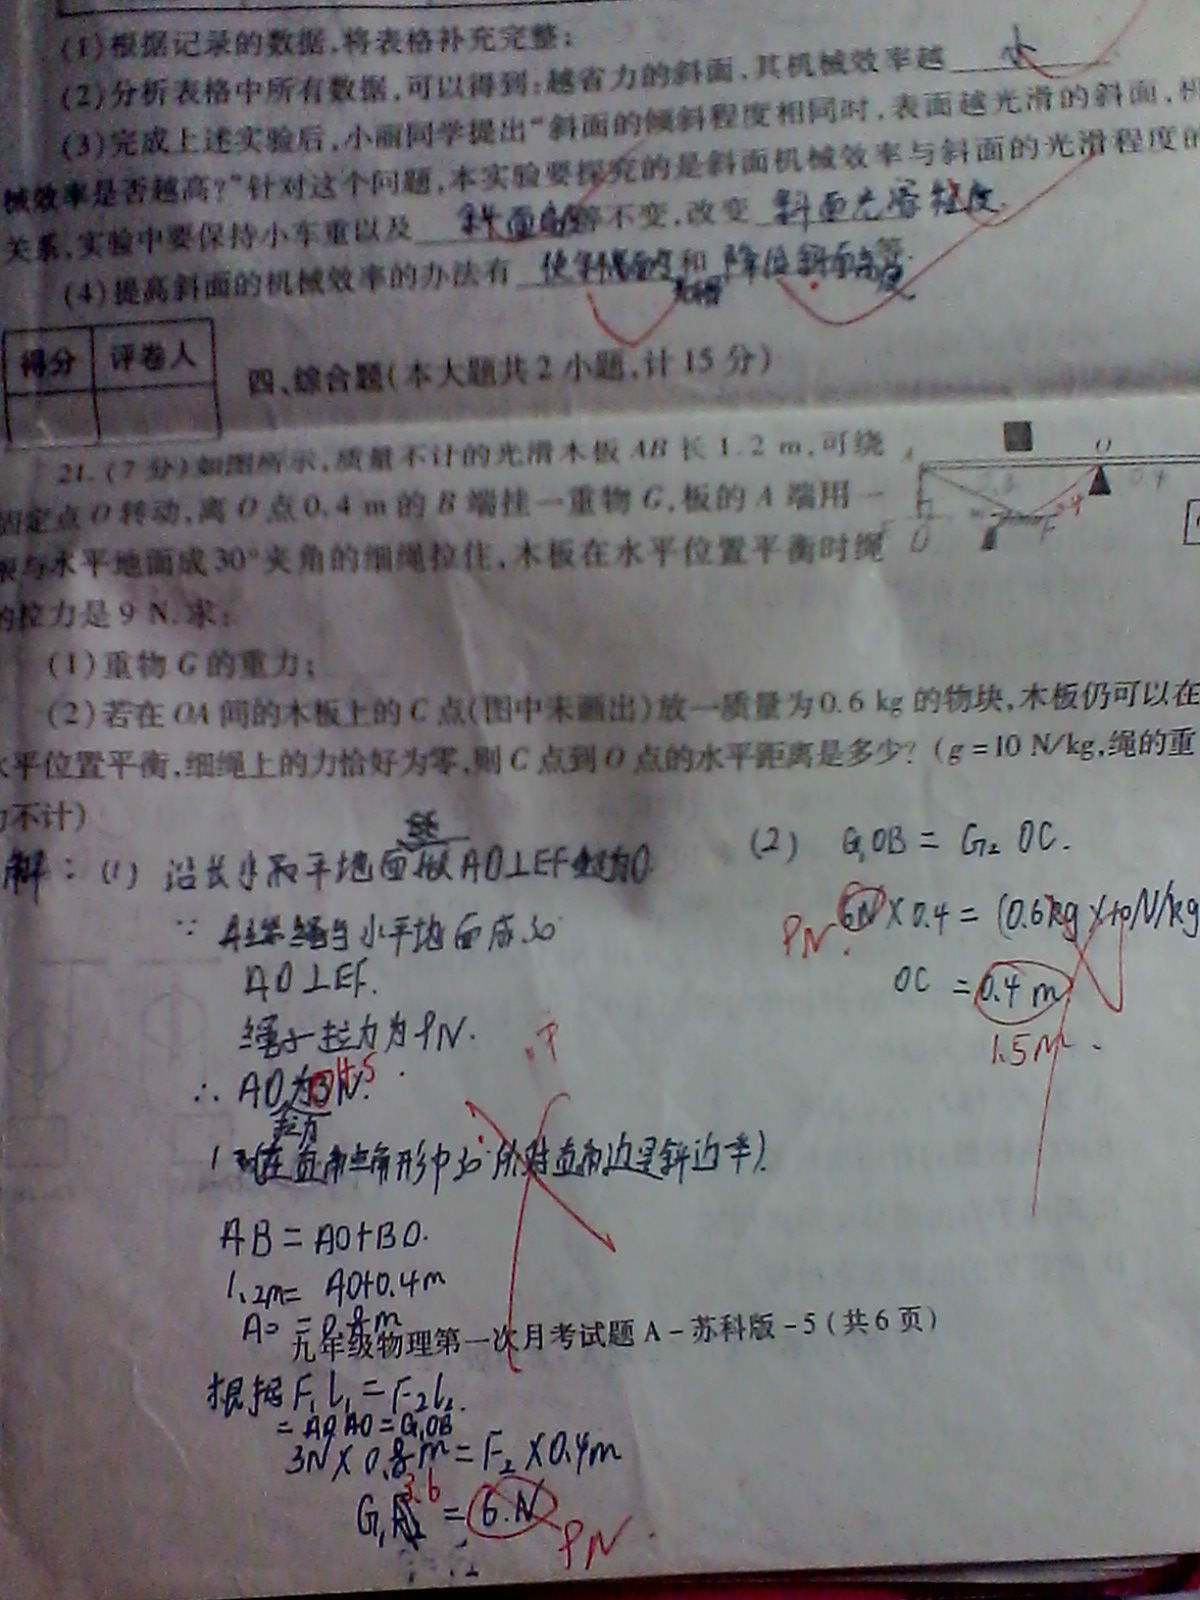 (1)根据记录的数据,将表格补充完整;
(2)分析表格中所有数据,可以得到:越省力的斜面,其机械效率越 小
(3)完成上述实验后,小丽同学提出“斜面的倾斜程度相同时,表面越光滑的斜面,机
械效率是否越高?”针对这个问题,本实验要探究的是斜面机械效率与斜面的光滑程度的
关系,实验中要保持小车重以及 斜面高 等不变,改变 斜面光滑程度.
(4)提高斜面的机械效率的办法有 使斜面 和 降低斜面高度 等.
光滑
得分 评卷人
四、综合题(本大题共2小题,计15分)
21.(7分)如图所示,质量不计的光滑木板AB长1.2 m,可绕
固定点O转动,离O点0.4 m的B端挂一重物G,板的A端用一
根与水平地面成30°夹角的细绳拉住,木板在水平位置平衡时绳
的拉力是9 N.求:
A O 0.8 0.4 0.4 E O F
(1)重物G的重力;
(2)若在OA间的木板上的C点(图中未画出)放一质量为0.6 kg的物块,木板仍可以在
水平位置平衡,细绳上的力恰好为零,则C点到O点的水平距离是多少?(g=10 N/kg,绳的重
力不计)
解:(1) 沿长水平地面做AO⊥EF 为O.
∵ 细绳与水平地面成30°
AO⊥EF.
绳子拉力为9N.
∴ AO为3N. 4.5
拉力
(在直角三角形中30°所对直角边是斜边半).
AB=AO+BO.
1.2m= AO+0.4m
AO=0.8m
九年级物理第一次月考试题A-苏科版-5(共6页)
根据F₁L₁=F₂L₂.
=AO AO=G₁OB
3N×0.8m=F₂×0.4m
3.6
G₁ =6.N
9N.
(2) G₁OB=G₂ OC.
6N×0.4=(0.6kg×10N/kg
9N.
OC =0.4m
1.5m.